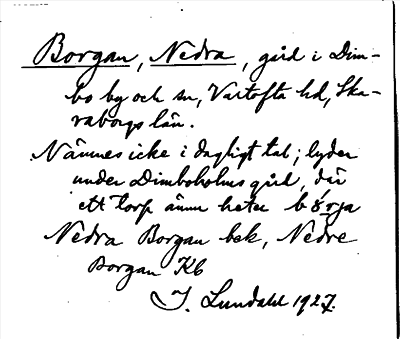 Borgan, Nedra, gård i Dim-
bo by och sn, Vartofta hd, Ska-
raborgs län.
Nämnes icke i dagligt tal; lyder
under Dimboholms gård, där
ett torp ännu heter börja
Nedra Borgan bek, Nedre
Borgan Kb
I. Lundahl 1927.